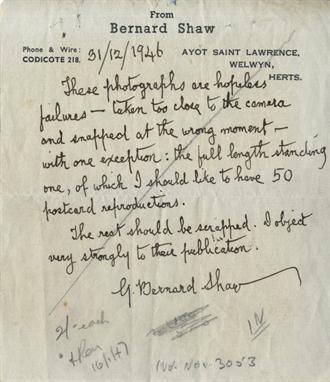 From
Bernard Shaw
Phone & Wire:
CODICOTE 218.
31/12/1946
AYOT SAINT LAWRENCE,
WELWYN,
HERTS.
These photographs are hopeless
failures — taken too close to the camera
and snapped at the wrong moment —
with one exception: the full length standing
one, of which I should like to have 50
postcard reproductions.
The rest should be scrapped. I object
very strongly to their publication.
G. Bernard Shaw
2/- each
16/1/47
Nov. 3053